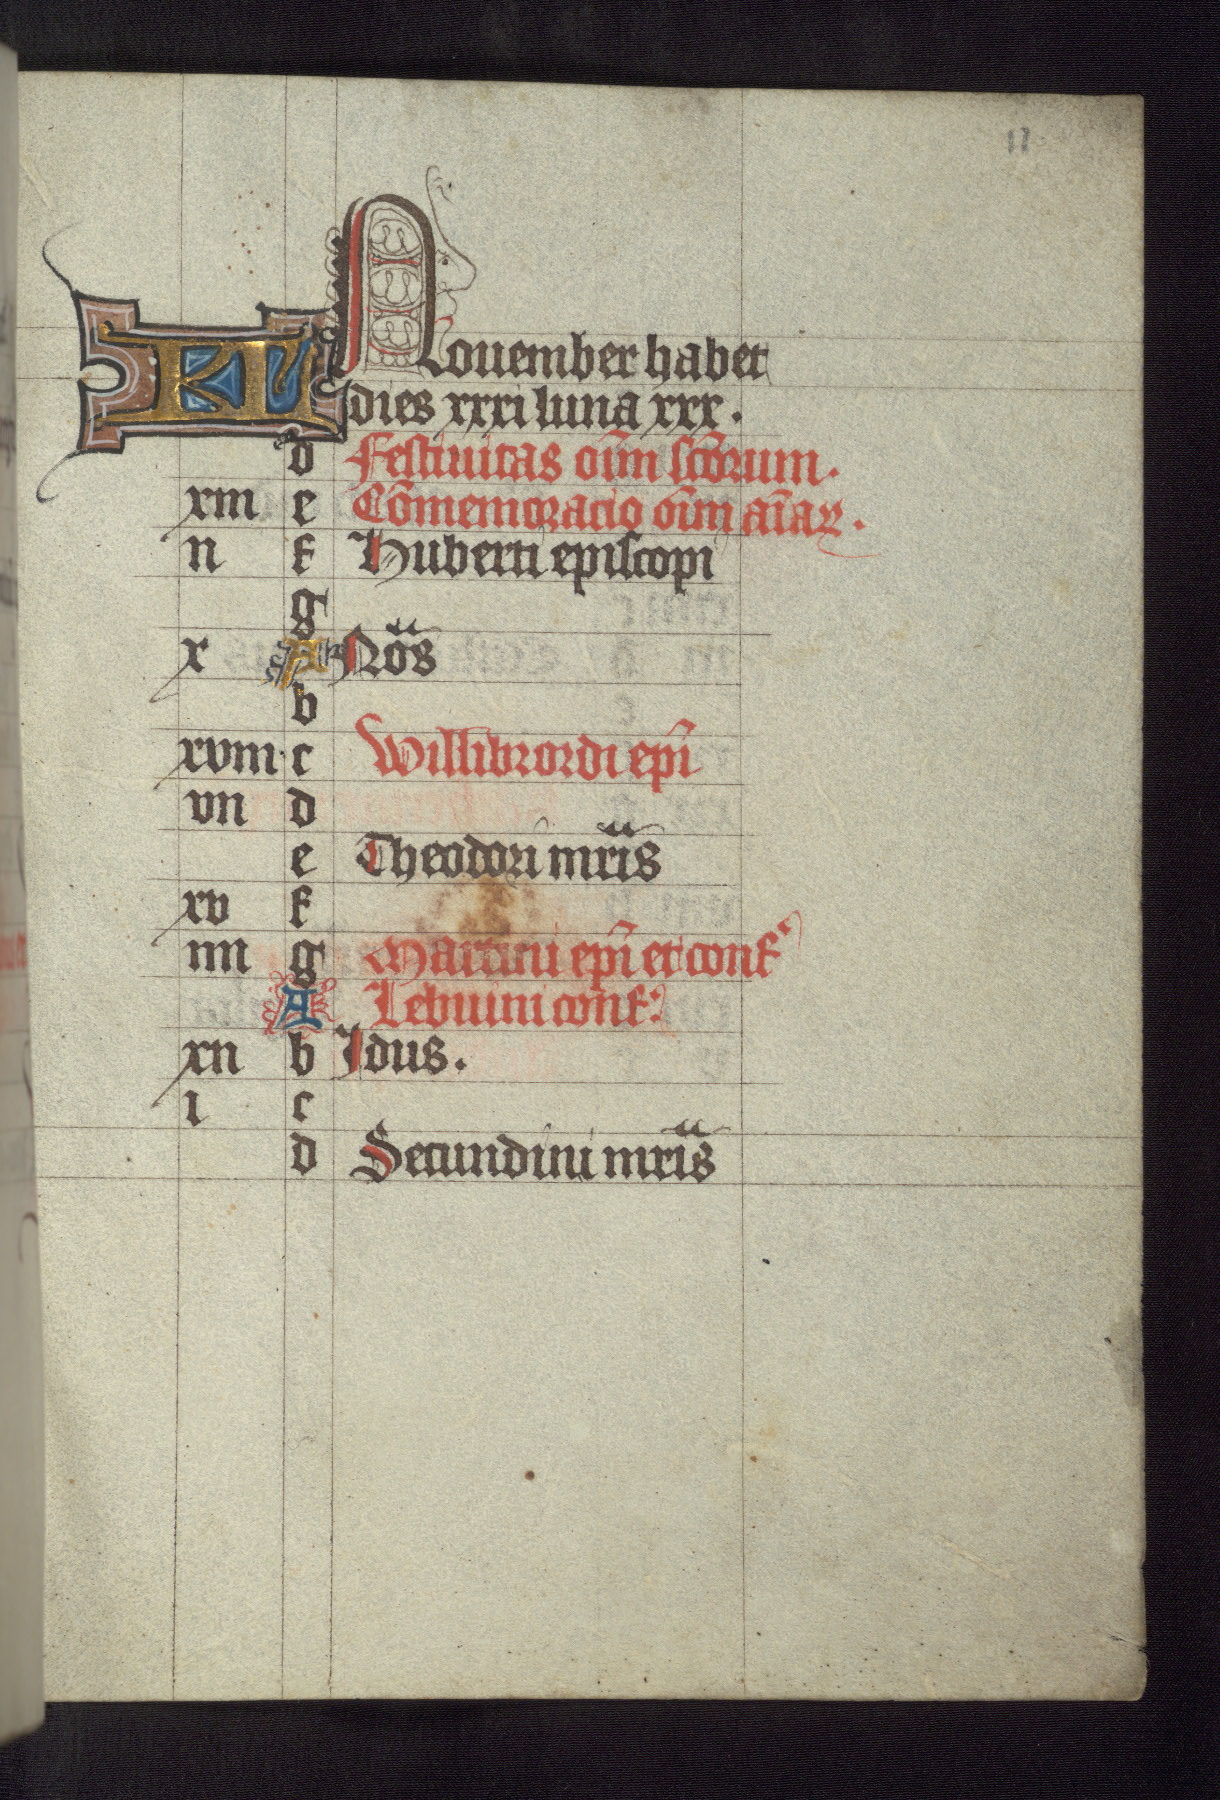 11
KL Nouember habet
dies xxxi luna xxx.
d Festiuitas oīm sctōrum.
xiii e Cōmemoracio oīm aīaꝝ.
ii f Huberti episcopi
g
x A Nōs
b
xviii c Willibrordi epī
vii d
e Theodori mrīs
xv f
iiii g Martini epī et conf'
A Lebuini conf'
xii b Idus.
i c
d Secundini mrīs